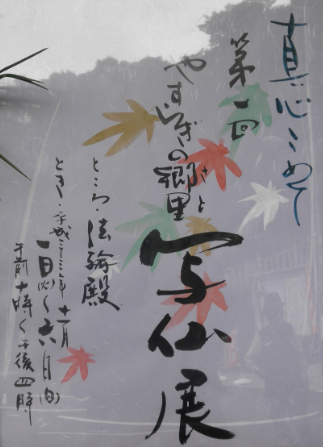 真心こめて
第一回
やすらぎの郷里
さと
写仏展
ところ・法輪殿
とき・平成二十三年十一月
一日(火)〜六日(日)
午前十時〜午後四時